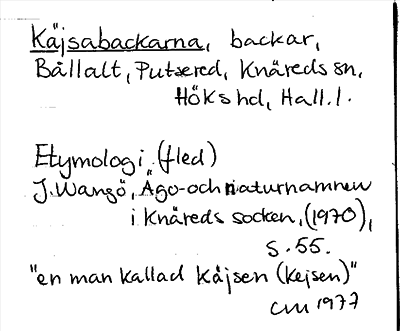 Käjsabackarna, backar,
Bållalt, Putsered, Knäreds sn,
Höks hd, Hall. l.
Etymologi (fled)
J. Wangö, Ägo- och naturnamnen
i Knäreds socken, (1970),
s. 55.
"en man kallad Kåjsen (Kejsen)"
cm 1977